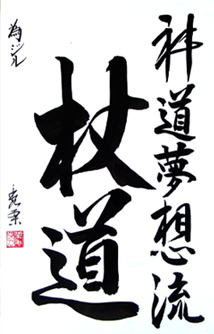 神道夢想流
杖道
為ジル